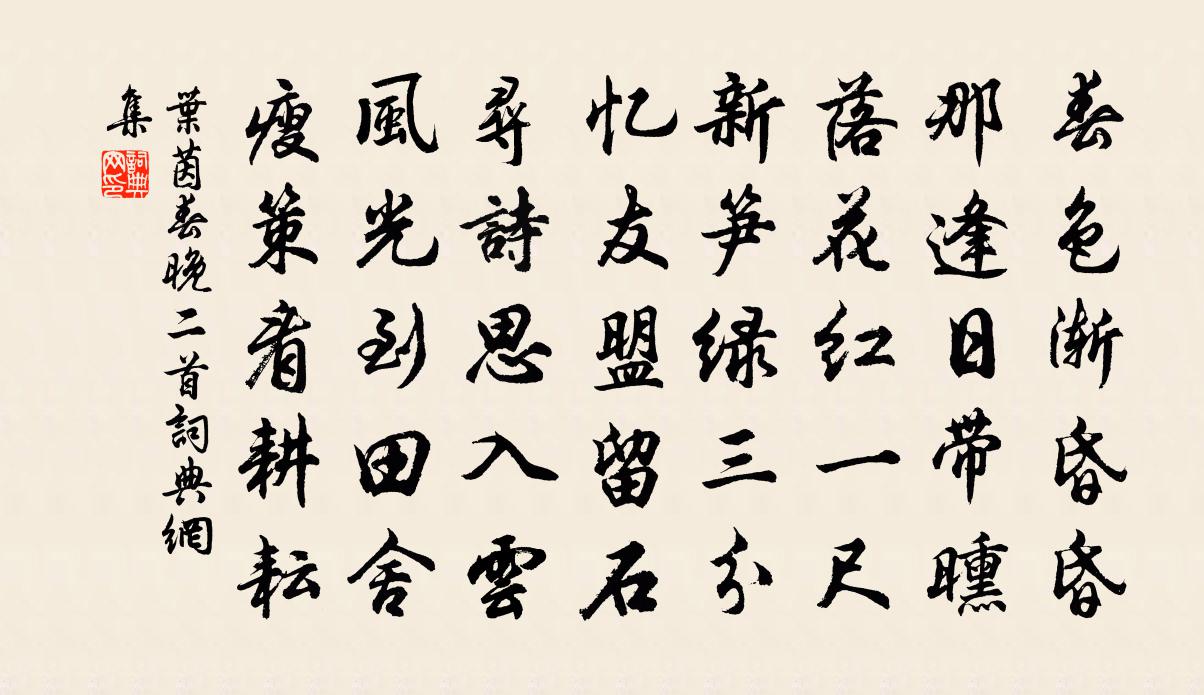 春色渐昏昏
那逢日带曛
落花红一尺
新笋绿三分
忆友盟留石
尋詩思入雲
風光到田舍
瘦策看耕耘
葉茵春晚二首詞典網
集
詞典
网印